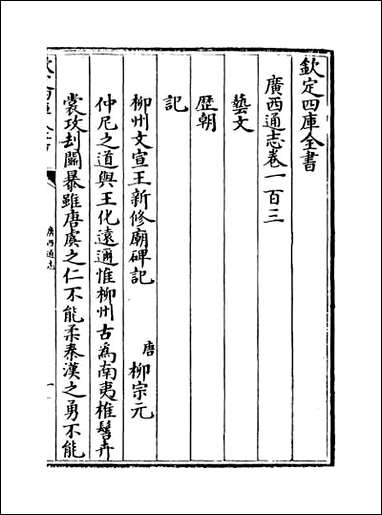 欽定四庫全書
廣西通志卷一百三
藝文
歴朝
記
柳州文宣王新修廟碑記 唐 柳宗元
仲尼之道與王化遠邇惟柳州古為南夷椎髻卉
裳攻刦鬬暴雖唐虞之仁不能柔秦漢之勇不能
廣西通志
一